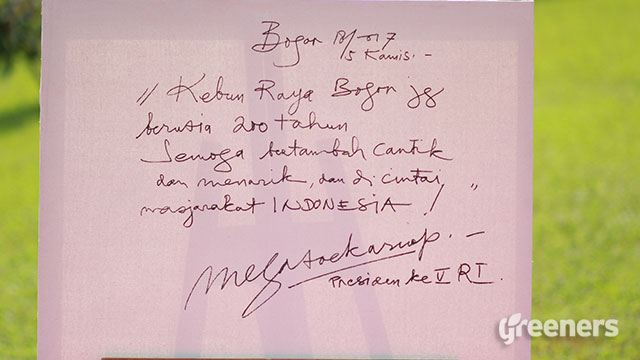 Bogor 18/-017
5 Kamis.-
" Kebun Raya Bogor yg
berusia 200 tahun
Semoga bertambah cantik
dan menarik, dan di cintai
masjarakat INDONESIA ! "
Megasoekarnop. -
Presiden ke V RI.
Greeners